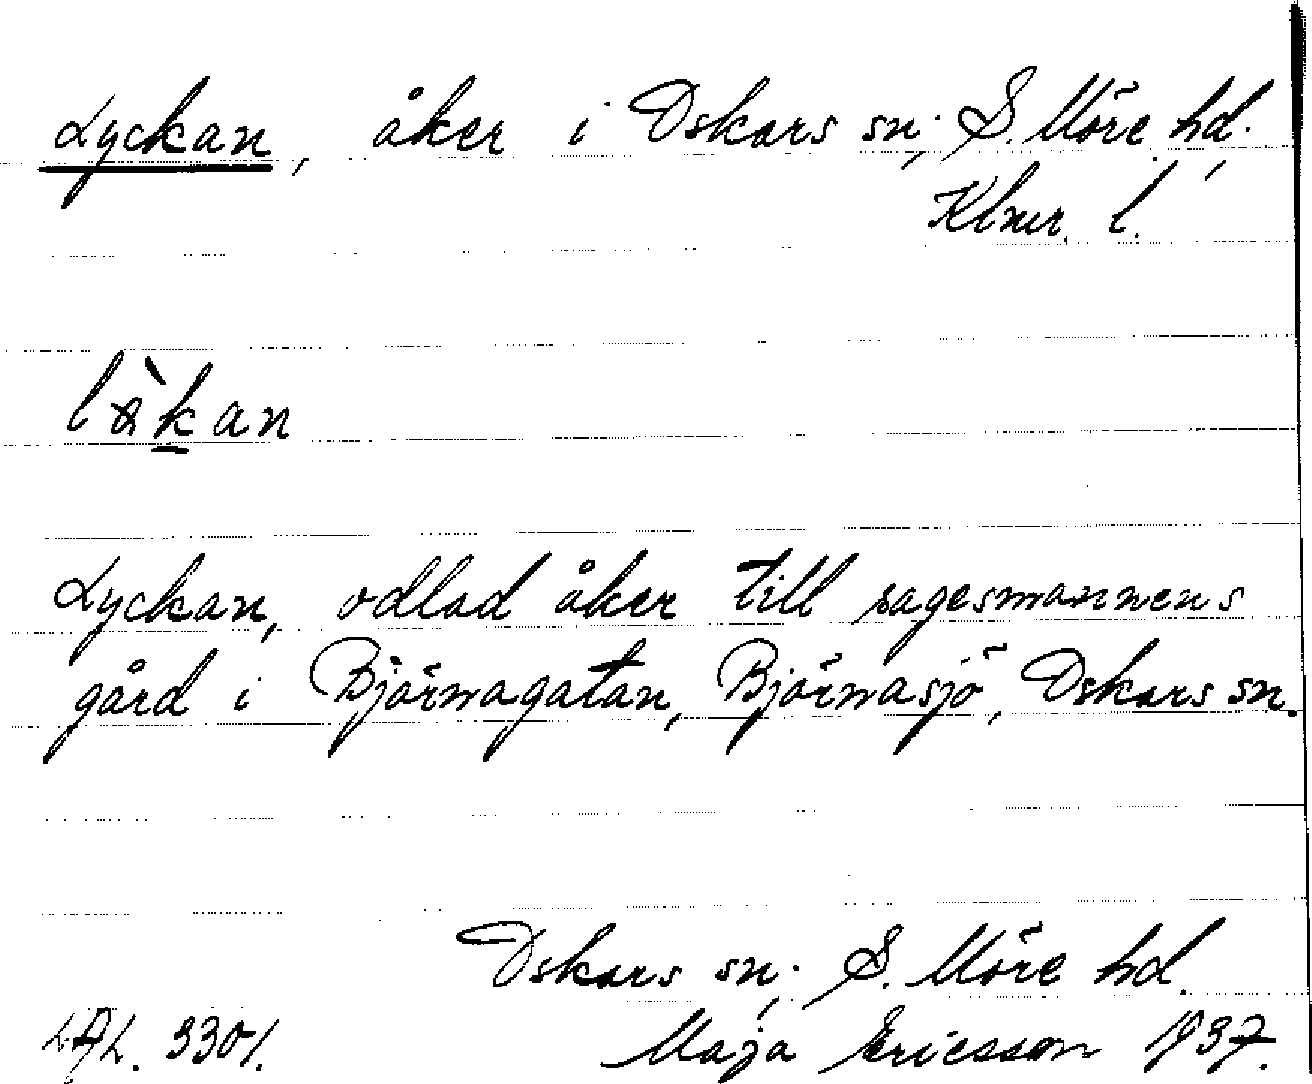 Lyckan, åker i Oskars sn; S. Möre hd,
Klmr. l.
Lyckan, odlad åker till sagesmannens
gård i Björnagatan, Björnasjö, Oskars sn.
Oskars sn; S. Möre hd.
LAL. 3301. Maja Ericsson 1937.